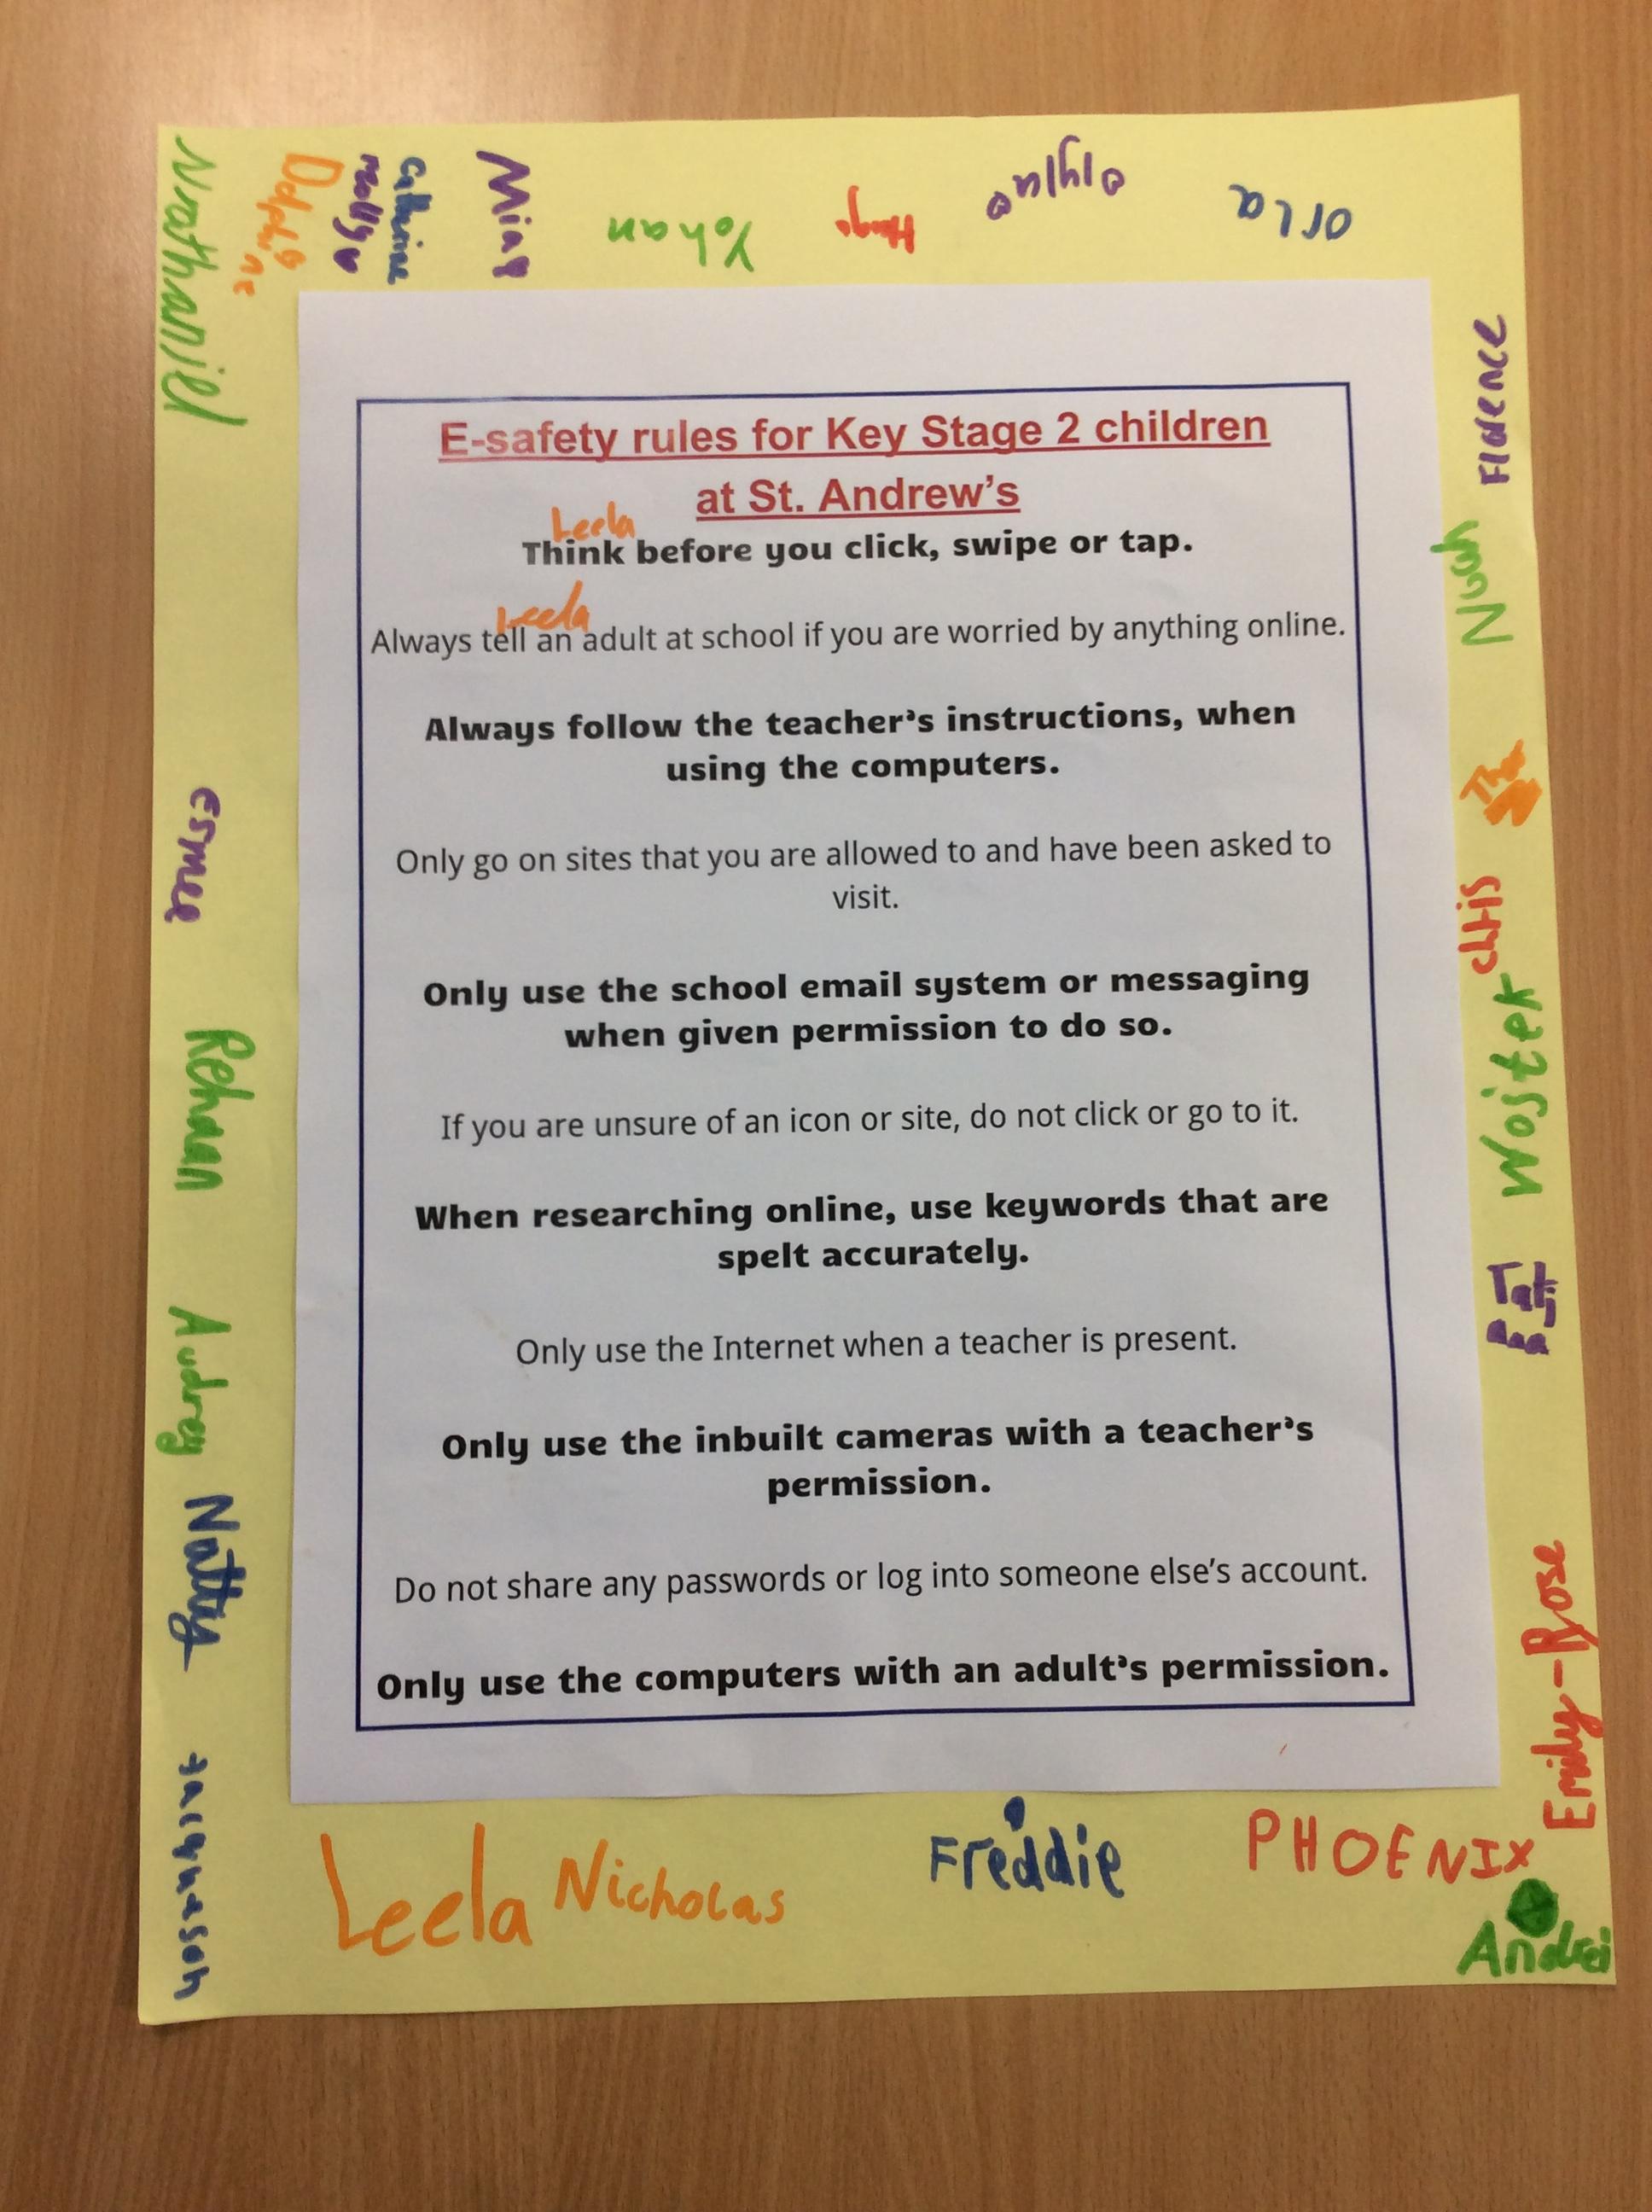 Nathaniel
Delphine
molly w
Catherine
Miap
Yohan
Hugo
orla
Florence
chris
Wojtek
Tatj
ana
Emily-Rose
E-safety rules for Key Stage 2 children
at St. Andrew's
Leela
Think before you click, swipe or tap.
Leela
Always tell an adult at school if you are worried by anything online.
Always follow the teacher's instructions, when
using the computers.
Only go on sites that you are allowed to and have been asked to
visit.
Only use the school email system or messaging
when given permission to do so.
If you are unsure of an icon or site, do not click or go to it.
When researching online, use keywords that are
spelt accurately.
Only use the Internet when a teacher is present.
Only use the inbuilt cameras with a teacher's
permission.
Do not share any passwords or log into someone else's account.
Only use the computers with an adult's permission.
esmee
Rehaan
Audrey
Natty
Leela
Nicholas
Freddie
PHOENIX
Andrei